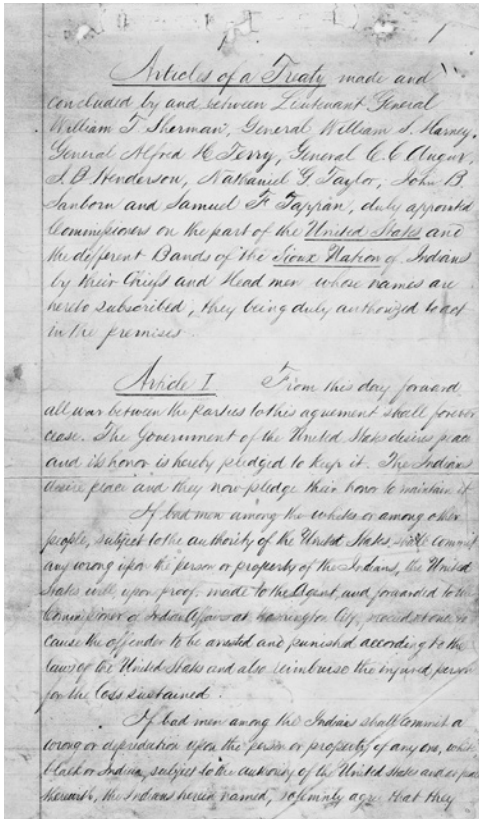 1
Articles of a Treaty made and
concluded by and between Lieutenant General
William T. Sherman, General William S. Harney,
General Alfred H. Terry, General C. C. Augur,
J. B. Henderson, Nathaniel G. Taylor, John B.
Sanborn and Samuel F. Tappan, duly appointed
Commissioners on the part of the United States and
the different Bands of the Sioux Nation of Indians
by their Chiefs and Head men whose names are
hereto subscribed, they being duly authorized to act
in the premises.
Article I. From this day forward
all war between the Parties to this agreement shall forever
cease. The Government of the United States desires peace
and its honor is hereby pledged to keep it. The Indians
desire peace and they now pledge their honor to maintain it
If bad men among the whites or among other
people, subject to the authority of the United States, shall commit
any wrong upon the person or property of the Indians, the United
States will, upon proof, made to the Agent, and forwarded to the
Commissioner of Indian Affairs at Washington City, proceed at once to
cause the offender to be arrested and punished according to the
laws of the United States and also reimburse the injured person
for the loss sustained.
If bad men among the Indians shall commit a
wrong or depredation upon the person or property of any one, white
black or Indian, subject to the authority of the United States and at peace
therewith, the Indians herein named, solemnly agree that they